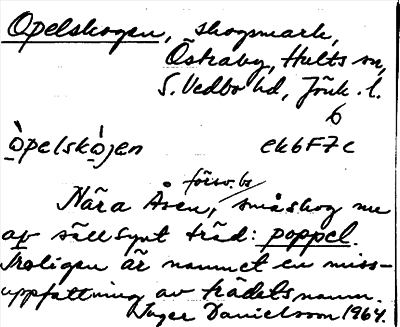 Opelskogen, skogsmark,
Östraby, Hults sn,
S. Vedbo hd, Jönk. l.
6
òpelskòjen ek6F7c
försv. bs
Nära Åsen, småskog nu
av sällsynt träd: poppel.
Troligen är namnet en miss-
uppfattning av trädets namn.
Inger Danielsson 1964.